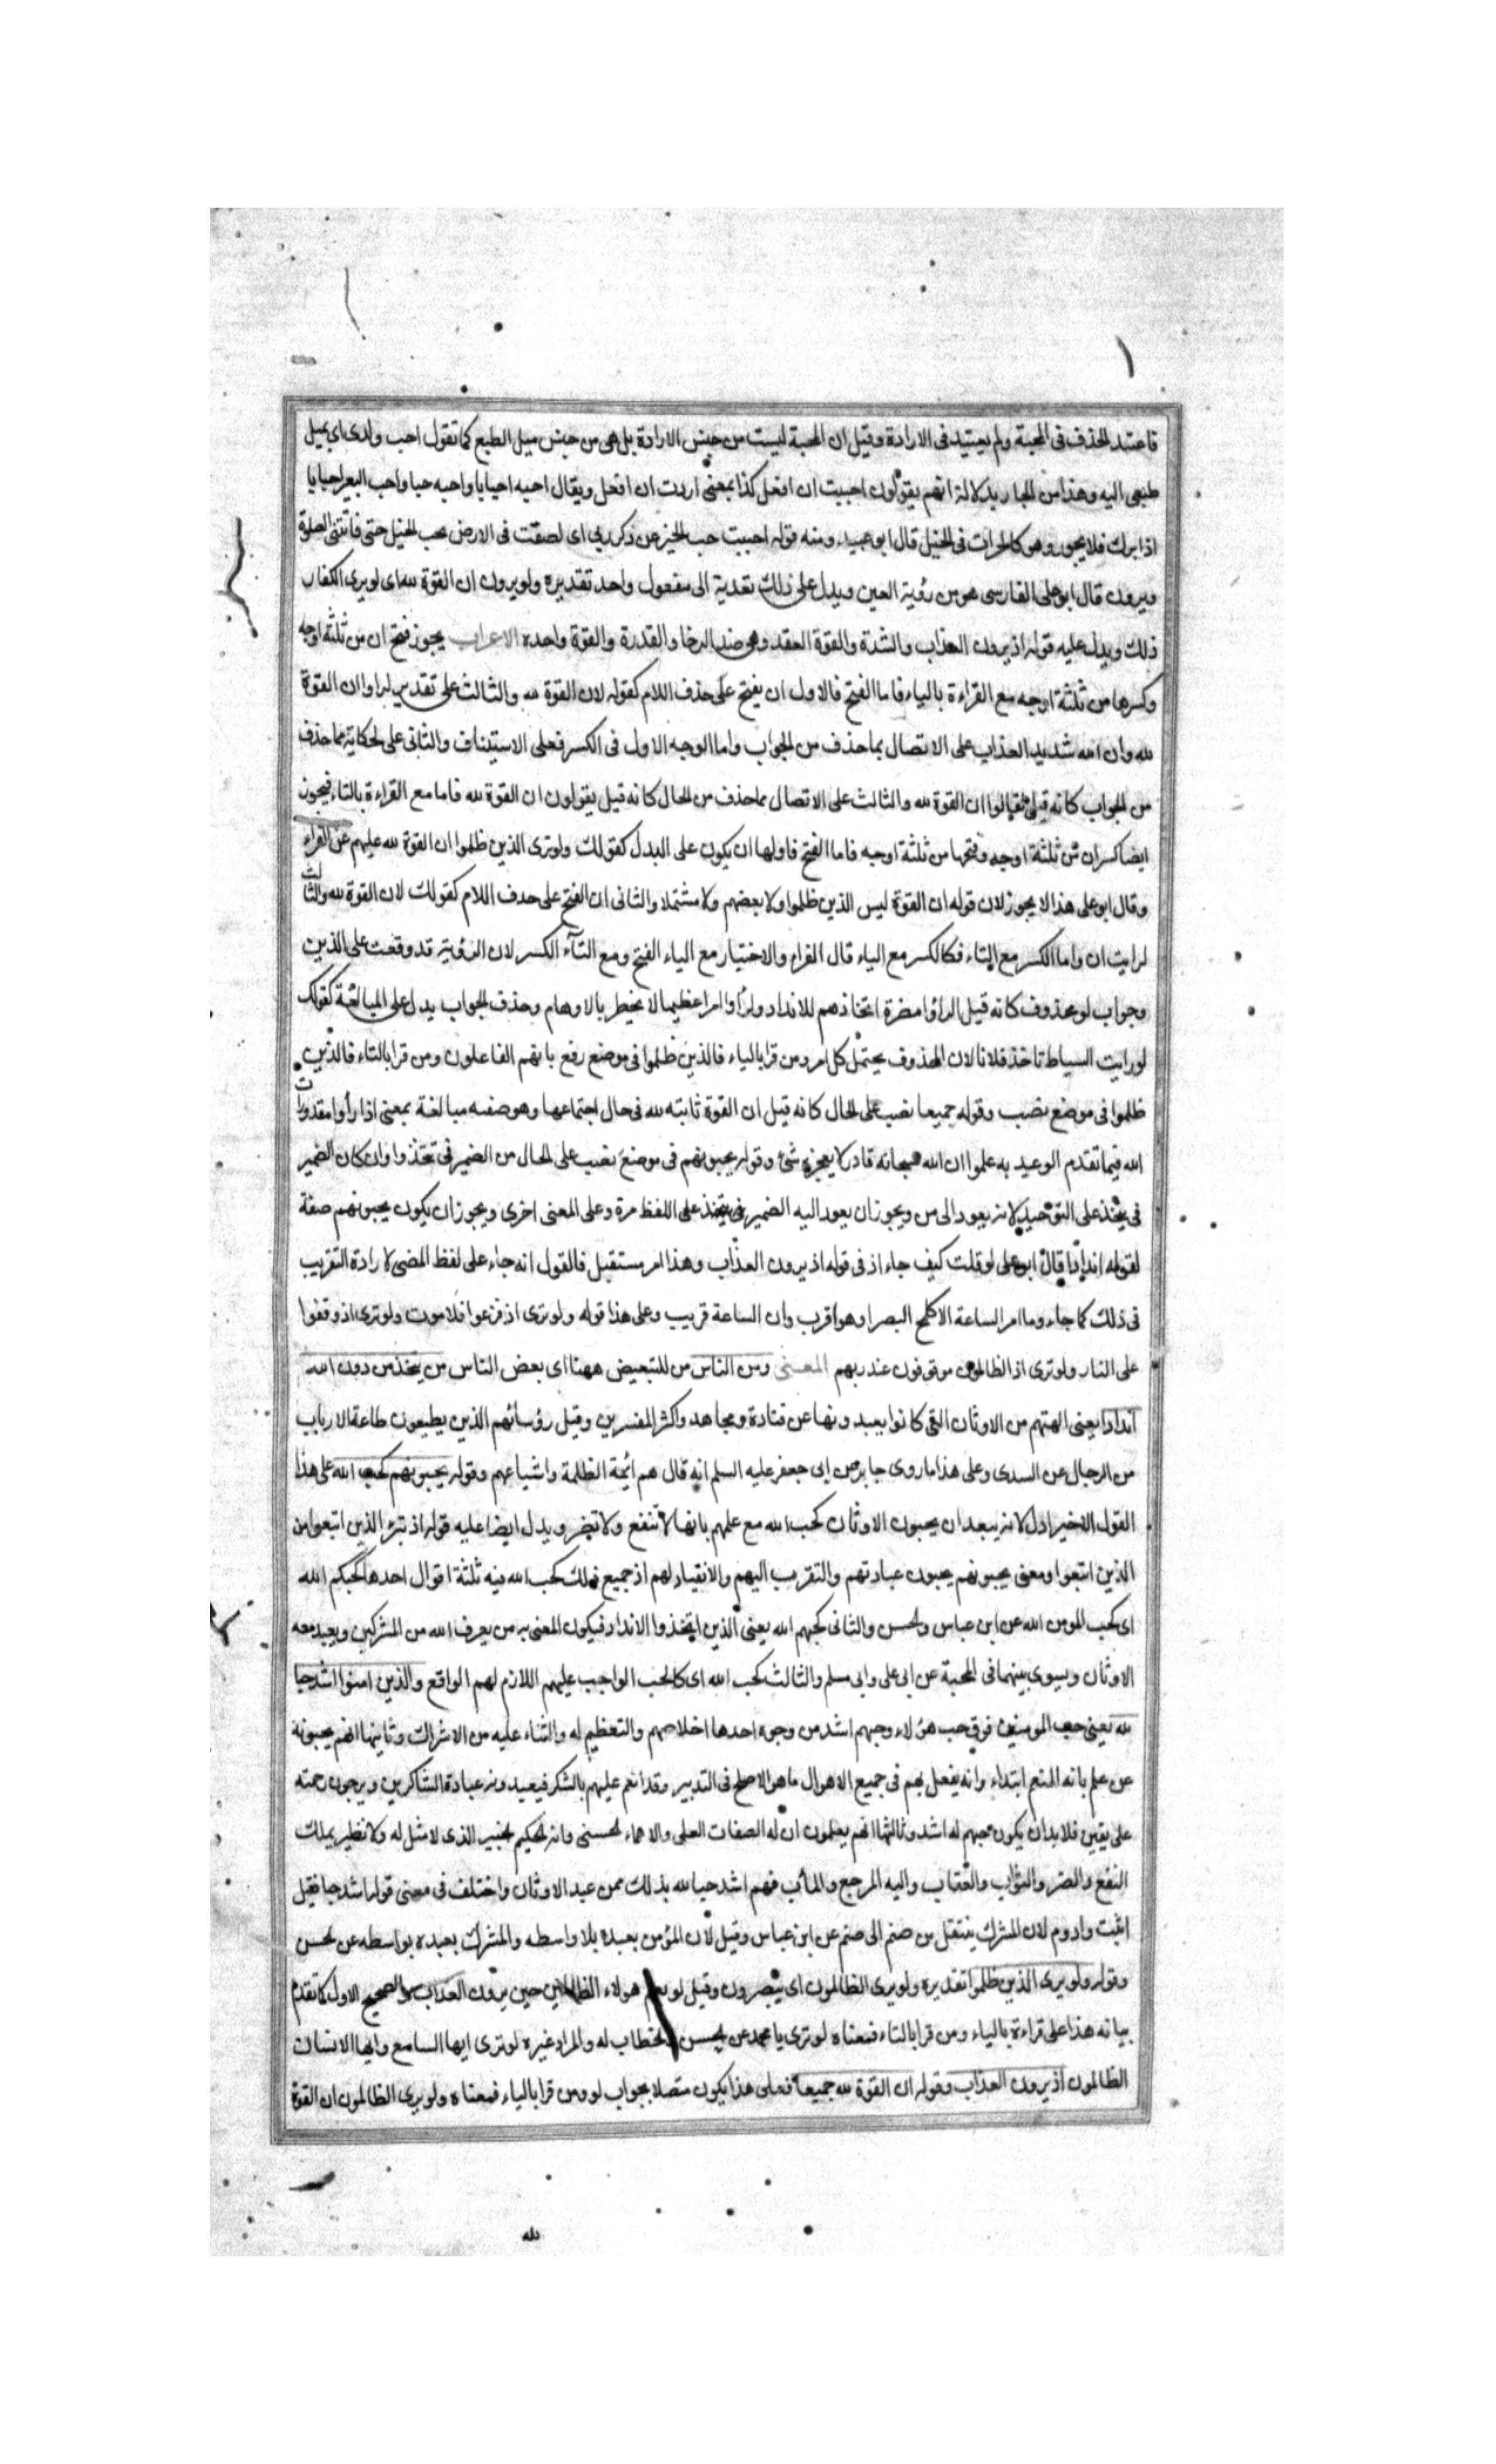 فاعتيد الحذف فى المحبة ولم يعتيد فى الارادة وقيل ان المحبة ليست من جنس الارادة بل هى من جنس ميل الطبع كما تقول احب ولدى اى يميل
طبعى اليه وهذا من المجاز بدلالة انهم يقولون احببت ان افعل كذا بمعنى اردت ان افعل ويقال احبه احبابا واحبه حبا واحب البعير احبابا
اذا برك فلا يحور وهو كالحران فى الخيل قال ابو عبيد ومنه قوله احببت حب الخير عن ذكر ربى اى لصقت فى الارض بحب الخيل حتى فاتتنى الصلوة
ويرون قال ابو على الفارسى هو من رؤية العين ويدل على ذلك تعدية الى مفعول واحد تقديره ولو يرون ان القوة لله اى لو يرى الكفار
ذلك ويدل عليه قوله اذ يرون العذاب والشدة والقوة العقد وهى ضد الرخا والقدرة والقوة واحده الاعراب يجوز فتح ان من ثلثة اوجه
وكسرها من ثلثة اوجه مع القراءة بالياء فاما الفتح فالاول ان يفتح على حذف اللام كقوله لان القوة لله والثالث على تقدير لراوا ان القوة
لله وان الله شديد العذاب على الاتصال بما حذف من الجواب واما الوجه الاول فى الكسر فعلى الاستيناف والثانى على الحكاية مما حذف
من الجواب كانه قيل لقالوا ان القوة لله والثالث على الاتصال مما حذف من الحال كانه قيل يقولون ان القوة لله فاما مع القراءة بالتاء فيجوز
ايضا كسر ان من ثلثة اوجه وفتحها من ثلثة اوجه فاما الفتح فاولها ان يكون على البدل كقولك ولو ترى الذين ظلموا ان القوة لله عليهم عن الفراء
وقال ابو على هذا لا يجوز لان قوله ان القوة ليس الذين ظلموا ولا بعضهم ولا مشتملا والثانى ان الفتح على حدف اللام كقولك لان القوة لله والثالث
لرايت ان واما الكسر مع التاء فكالكسر مع الياء قال الفراء والاختيار مع الياء الفتح ومع التآء الكسر لان الرؤية قد وقعت على الذين
وجواب لو محذوف كانه قيل لراوا مضرة اتخاذهم للانداد ولرأوا امرا عظيما لا يخطر بالاوهام وحذف الجواب يدل على المبالغة كقولك
لو رايت السياط تاخذ فلانا لان المحذوف يحتمل كل امر ومن قرا بالياء فالذين ظلموا فى موضع رفع بانهم الفاعلون ومن قرا بالتاء فالذين
ظلموا فى موضع نصب وقوله جميعا نصب على الحال كانه قيل ان القوة ثابته لله فى حال اجتماعها وهو صفه مبالغة بمعنى اذا رأوا مقدورات
الله فيما تقدم الوعيد به علموا ان الله سبحانه قادر لا يعجزه شئ وقوله يحبونهم فى موضع نصب على الحال من الضمير فى يتخذ وان كان الضمير
فى يتخذ على التوحيد لانه يعود الى من ويجوز ان يعود اليه الضمير فى يتخذ على اللفظ مرة وعلى المعنى اخرى ويجوز ان يكون يحبونهم صفة
لقوله اندادا قال ابو على لو قلت كيف جاء اذ فى قوله اذ يرون العذاب وهذا امر مستقبل فالقول انه جاء على لفظ المضى لارادة التقريب
فى ذلك كما جاء وما امر الساعة الا كلمح البصر او هو اقرب وان الساعة قريب وعلى هذا قوله ولو ترى اذ فزعوا فلا موت ولو ترى اذ وقفوا
على النار ولو ترى اذ الظالمون موقوفون عند ربهم المعنى ومن الناس من للتبعيض ههنا اى بعض الناس من يتخذ من دون الله
اندادا يعنى الهتهم من الاوثان التى كانوا يعبدونها عن قتادة ومجاهد واكثر المفسرين وقيل رؤسائهم الذين يطيعون طاعة الارباب
من الرجال عن السدى وعلى هذا ما روى جابر عن ابى جعفر عليه السلم انه قال هم ائمة الظلمة واشياعهم وقوله يحبونهم كحب الله على هذا
القول الاخير ادل لانه يبعد ان يحبون الاوثان كحب الله مع علمهم بانها لا تنفع ولا تضر ويدل ايضا عليه قوله اذ تبرّء الذين اتبعوا من
الذين اتبعوا ومعنى يحبونهم يحبون عبادتهم والتقرب اليهم والانقياد لهم اذ جميع ذلك كحب الله فيه ثلثة اقوال احدها كحبكم الله
اى كحب المومن الله عن ابن عباس والحسن والثانى كحبهم الله يعنى الذين اتخذوا الانداد فيكون المعنى به من يعرف الله من المشركين ويعبد معه
الاوثان ويسوى بينهما فى المحبة عن ابى على وابى مسلم والثالث كحب الله اى كالحب الواجب عليهم اللازم لهم الواقع والذين امنوا اشد حبا
لله يعنى حب المومنين فوق حب هؤلاء وحبهم اشد من وجوه احدها اخلاصهم والتعظيم له والثناء عليه من الاشراك وثانيها انهم يحبونه
عن علم بانه المنعم ابتداء وانه يفعل بهم فى جميع الاهوال ما هو الاصلح فى التدبير وقد انعم عليهم بالشكر فيعبدونه عبادة الشاكرين ويرجون رحمته
على يقين فلا بد ان يكون حبهم له اشد وثالثها انهم يعلمون ان له الصفات العلى والاسماء الحسنى وانه الحكيم الخبير الذى لا مثل له ولا نظير يملك
النفع والضر والثواب والعقاب واليه المرجع والمآب فهم اشد حبا لله بذلك ممن عبد الاوثان واختلف فى معنى قوله اشد حبا فقيل
اثبت وادوم لان المشرك ينتقل من صنم الى صنم عن ابن عباس وقيل لان المؤمن يعبده بلا واسطه والمشرك يعبده بواسطه عن الحسن
وقوله ولو يرى الذين ظلموا تقديره ولو يرى الظالمون اى يبصرون وقيل لو يعلم هولاء الظالمين حين يرون العذاب والصحيح الاول كما تقدم
بيانه هذا على قراءة بالياء ومن قرا بالتاء فمعناه لو ترى يا محمد عن الحسن الخطاب له والمراد غيره لو ترى ايها السامع وايها الانسان
الظالمون اذ يرون العذاب وقوله ان القوة لله جميعا فعلى هذا يكون متصلا بجواب لو ومن قرا بالياء فمعناه ولو يرى الظالمون ان القوة
لله